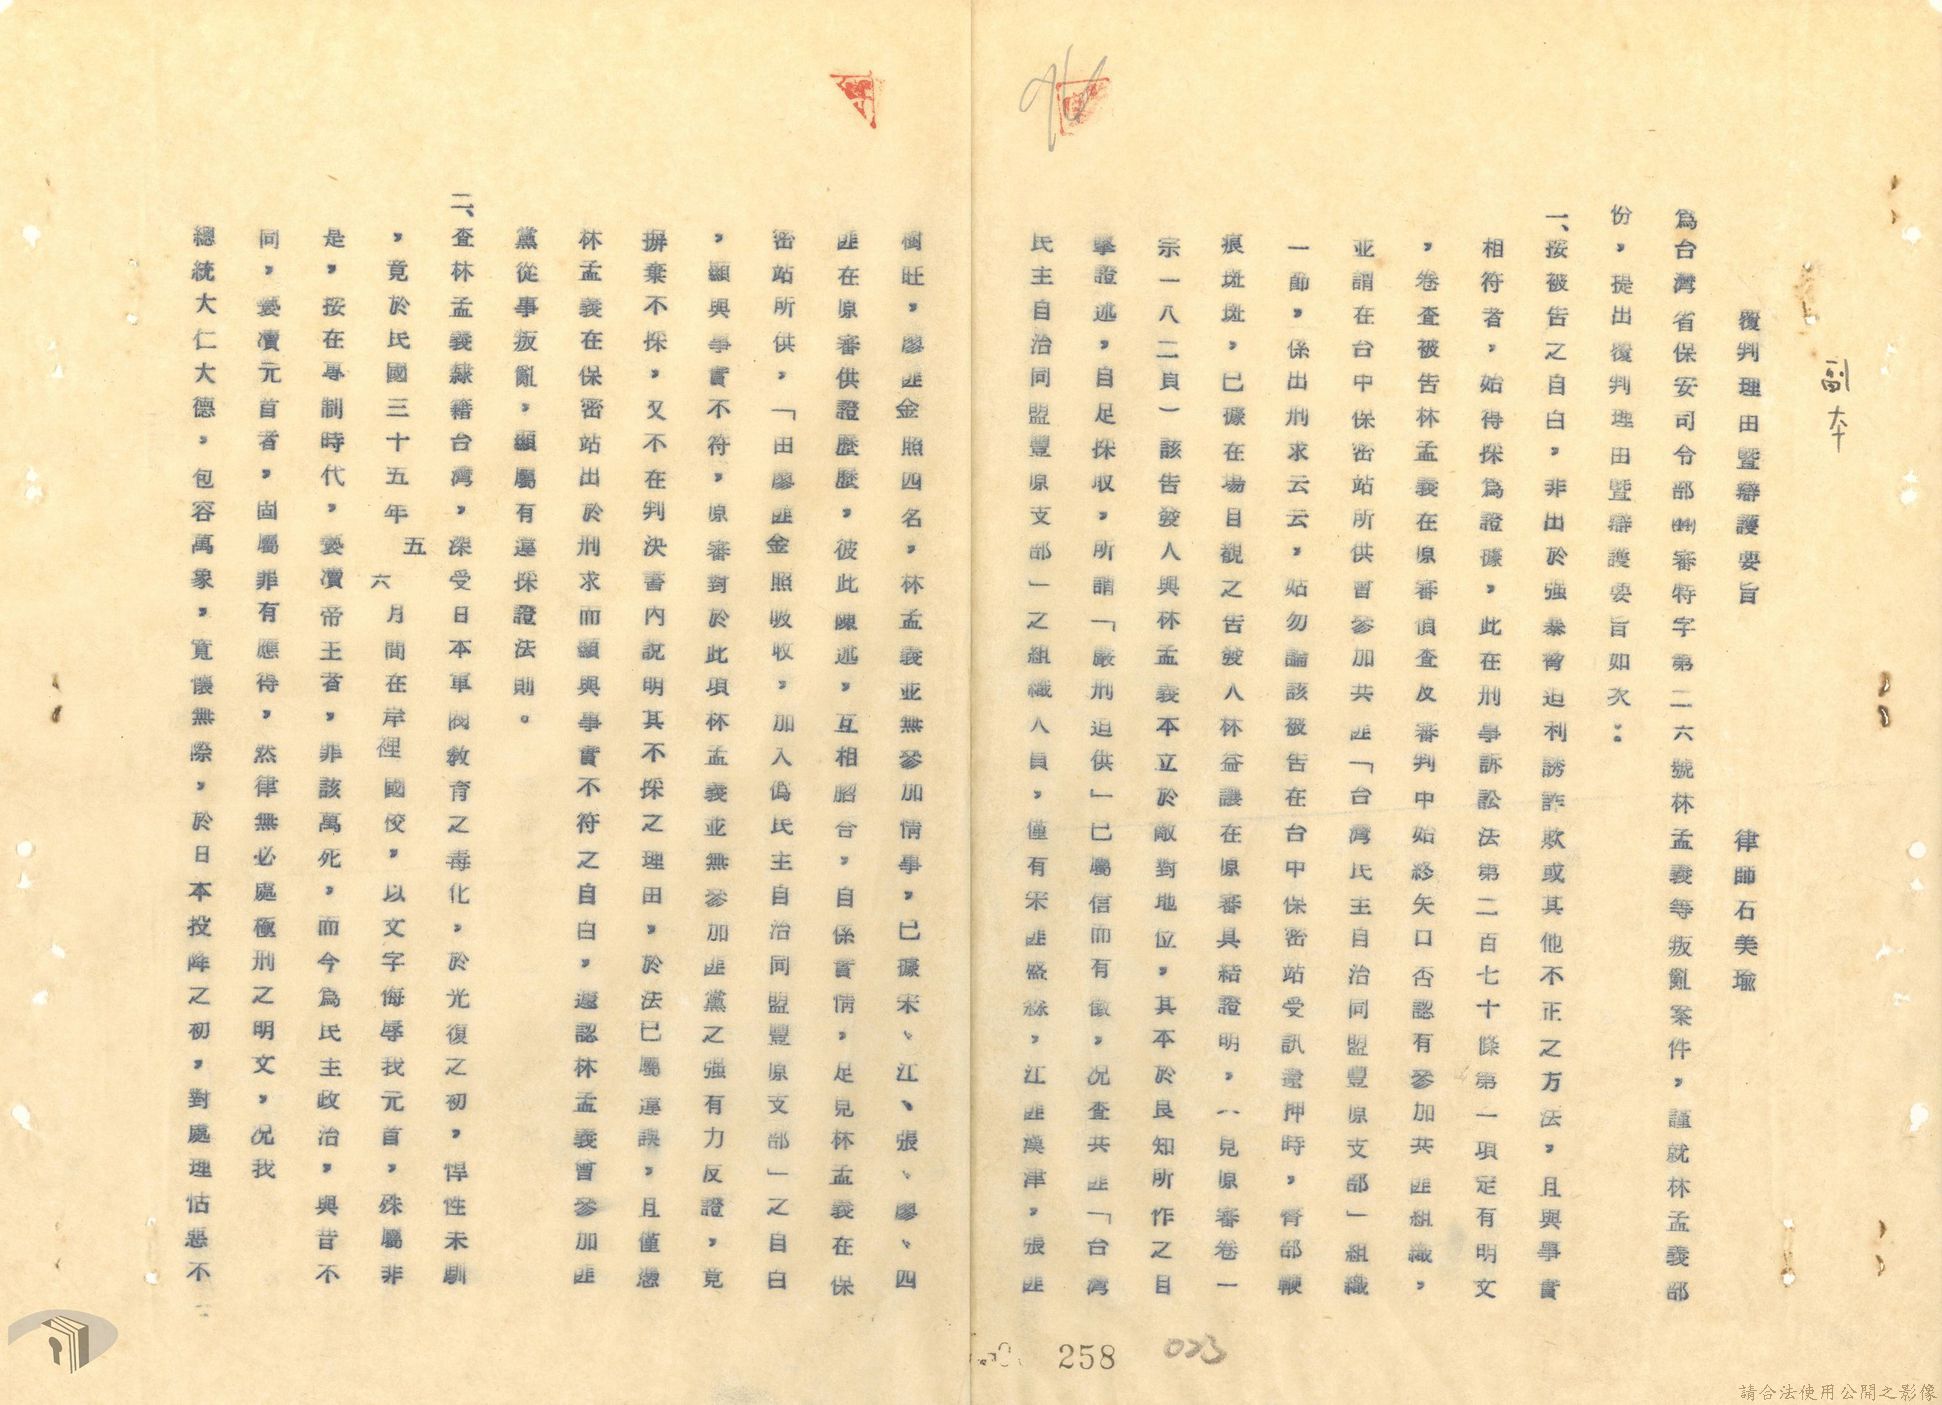 副本
覆判理由暨辯護要旨
律師石美瑜
為台灣省保安司令部審特字第二六號林孟義等叛亂案件，謹就林孟義部
份，提出覆判理由暨辯護要旨如次：
一、按被告之自白，非出於强暴脅迫利誘詐欺或其他不正之方法，且與事實
相符者，始得採為證據，此在刑事訴訟法第二百七十條第一項定有明文
，卷查被告林孟義在原審偵查及審判中始終矢口否認有參加共匪組織，
並謂在台中保密站所供曾參加共匪「台灣民主自治同盟豐原支部」組織
一節，係出刑求云云，姑勿論該被告在台中保密站受訊遭押時，臀部鞭
痕斑斑，已據在場目覩之告發人林益讓在原審具結證明，（見原審卷一
宗一八二頁）該告發人與林孟義本立於敵對地位，其本於良知所作之目
擊證述，自足採收，所謂「嚴刑迫供」已屬信而有徵，况查共匪「台灣
民主自治同盟豐原支部」之組織人員，僅有宋匪盛淼，江匪漢津，張匪
樹旺，廖匪金照四名，林孟義並無參加情事，已據宋、江、張、廖、四
匪在原審供證歷歷，彼此陳述，互相脗合，自係實情，足見林孟義在保
密站所供，「由廖匪金照吸收，加入偽民主自治同盟豐原支部」之自白
，顯與事實不符，原審對於此項林孟義並無參加匪黨之强有力反證，竟
摒棄不採，又不在判決書內說明其不採之理由，於法已屬違誤，且僅憑
林孟義在保密站出於刑求而顯與事實不符之自白，遽認林孟義曾參加匪
黨從事叛亂，顯屬有違採證法則。
二、查林孟義隸籍台灣，深受日本軍閥教育之毒化，於光復之初，悍性未馴
，竟於民國三十五年五六月間在岸裡國校，以文字侮辱我元首，殊屬非
是，按在專制時代，褻瀆帝王者，罪該萬死，而今為民主政治，與昔不
同，褻瀆元首者，固屬罪有應得，然律無必處極刑之明文，况我
總統大仁大德，包容萬象，寬懷無際，於日本投降之初，對處理怙惡不
258
023
請合法使用公開之影像